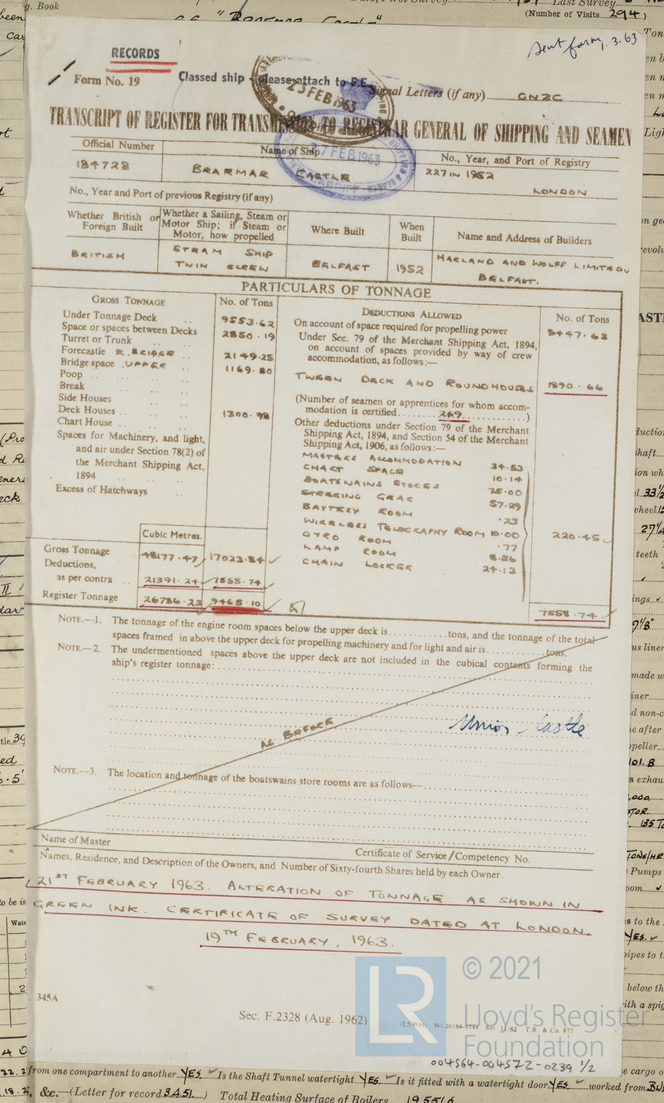 Book
Last Survey
S.S. "Braemar Castle"
(Number of Visits 294)
Sent form, 1.3.63
RECORDS
Form No. 19
Classed ship - please attach to F.E.
Signal Letters (if any) GNZC
23 FEB 1963
TRANSCRIPT OF REGISTER FOR TRANSMISSION TO REGISTRAR GENERAL OF SHIPPING AND SEAMEN
27 FEB 1963
Official Number
Name of Ship
No., Year, and Port of Registry
184728
BRAEMAR CASTLE
227 IN 1952
LONDON
No., Year and Port of previous Registry (if any)
Whether British or Foreign Built
Whether a Sailing, Steam or Motor Ship; if Steam or Motor, how propelled
Where Built
When Built
Name and Address of Builders
BRITISH
STEAM SHIP
TWIN SCREW
BELFAST
1952
HARLAND AND WOLFF LIMITED
BELFAST.
PARTICULARS OF TONNAGE
GROSS TONNAGE
No. of Tons
Under Tonnage Deck 9553.62
Space or spaces between Decks 2850.19
Turret or Trunk
Forecastle & BRIDGE 2149.25
Bridge space UPPER 1169.80
Poop
Break
Side Houses
Deck Houses 1300.98
Chart House
Spaces for Machinery, and light,
and air under Section 78(2) of
the Merchant Shipping Act,
1894
Excess of Hatchways
Cubic Metres.
Gross Tonnage 48177.47 17023.84
Deductions,
as per contra 21391.24 7558.74
Register Tonnage 26786.23 9465.10
DEDUCTIONS ALLOWED
No. of Tons
On account of space required for propelling power 5447.63
Under Sec. 79 of the Merchant Shipping Act, 1894,
on account of spaces provided by way of crew
accommodation, as follows:—
TWEEN DECK AND ROUNDHOUSES 1890.66
(Number of seamen or apprentices for whom accom-
modation is certified 269)
Other deductions under Section 79 of the Merchant
Shipping Act, 1894, and Section 54 of the Merchant
Shipping Act, 1906, as follows:—
MASTERS ACCOMMODATION 34.53
CHART SPACE 10.14
BOATSWAINS STORES 75.00
STEERING GEAR 57.29
BATTERY ROOM .23
WIRELESS TELOGRAPHY ROOM 10.00
GYRO ROOM .77
LAMP ROOM 8.36
CHAIN LOCKER 24.13
220.45
7558.74
NOTE.—1. The tonnage of the engine room spaces below the upper deck is tons, and the tonnage of the total
spaces framed in above the upper deck for propelling machinery and for light and air is tons.
NOTE.—2. The undermentioned spaces above the upper deck are not included in the cubical contents forming the
ship's register tonnage:
AS BEFORE
Union Castle
NOTE.—3. The location and tonnage of the boatswains store rooms are as follows—
Name of Master
Certificate of Service/Competency No.
Names, Residence, and Description of the Owners, and Number of Sixty-fourth Shares held by each Owner.
21ST FEBRUARY 1963. ALTERATION OF TONNAGE AS SHOWN IN
GREEN INK. CERTIFICATE OF SURVEY DATED AT LONDON.
19TH FEBRUARY, 1963.
LR
© 2021
Lloyd's Register
Foundation
345A
Sec. F.2328 (Aug. 1962)
004564-004572-0239 1/2
from one compartment to another YES. Is the Shaft Tunnel watertight YES. Is it fitted with a watertight door YES worked from
&c.—(Letter for record 3451.) Total Heating Surface of Boilers